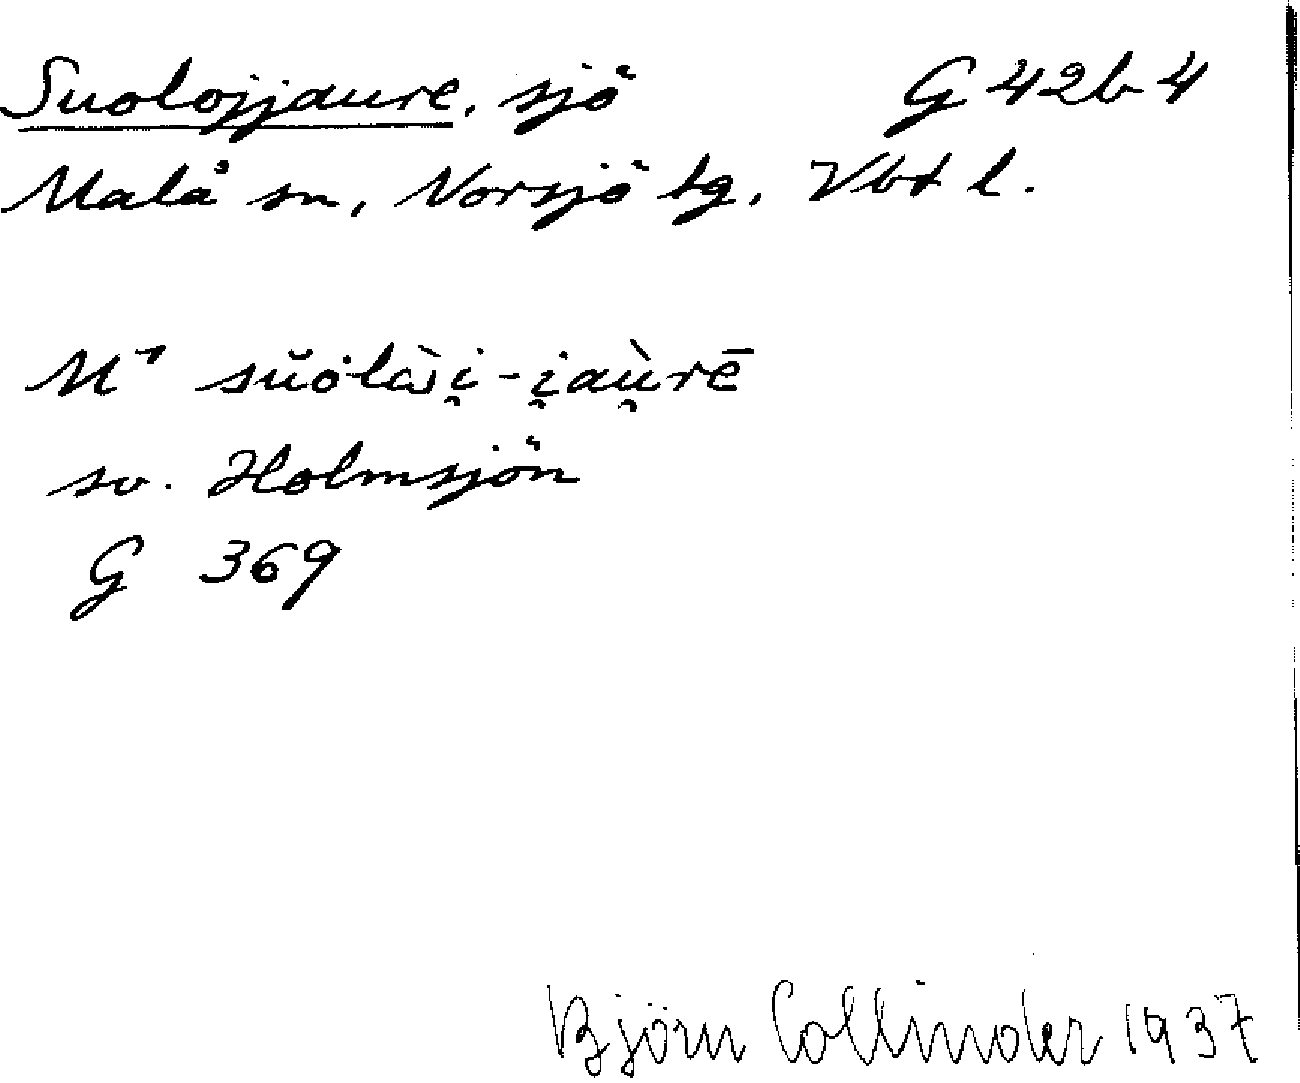 Suolojjaure, sjö G 42b 4
Malå sn, Norsjö tg, Vbt l.
M⁷ sŭölɑ̀i̯-i̯aù̯rē
sv. Holmsjön
G 369
Björn Collinder 1937